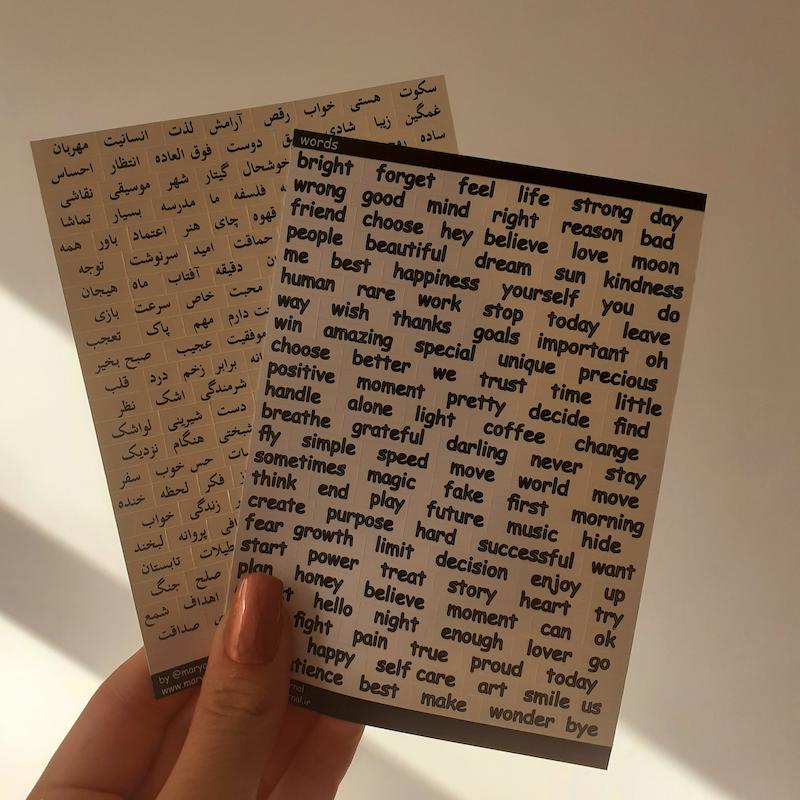 سکوت هستی خواب رقص آرامش لذت انسانیت مهربان
غمگین زیبا شادی دوست فوق العاده انتظار احساس
ساده خوشحال گیتار شهر موسیقی نقاشی
فلسفه ما مدرسه بسیار تماشا
قهوه چای هنر اعتماد باور همه
حماقت امید سرنوشت توجه
دقیقه آفتاب ماه هیجان
محبت خاص سرعت بازی
دارم مهم پاک تعجب
موفقیت عجیب صبح بخیر
برابر زخم درد قلب
شرمندگی اشک نظر
دست شیرینی لواشک
هنگام نزدیک
حس خوب سفر
فکر لحظه خنده
زندگی خواب
پروانه لبخند
تابستان
صلح جنگ
اهداف شمع
صداقت
words
bright forget feel life strong day
wrong good mind right reason bad
friend choose hey believe love moon
people beautiful dream sun kindness
me best happiness yourself you do
human rare work stop today leave
way wish thanks goals important oh
win amazing special unique precious
choose better we trust time little
positive moment pretty decide find
handle alone light coffee change
breathe grateful darling never stay
fly simple speed move world move
sometimes magic fake first morning
think end play future music hide
create purpose hard successful want
fear growth limit decision enjoy up
start power treat story heart try
plan honey believe moment can ok
hello night enough lover go
fight pain true proud today
happy self care art smile us
best make wonder bye